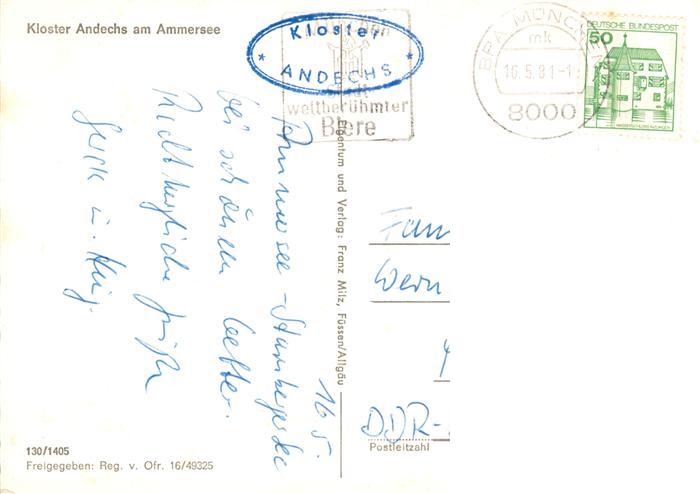 Kloster Andechs am Ammersee
Kloster
* ANDECHS *
weltberühmter
Biere
BPA MÜNCHEN
mk
16.5.81-1
8000
DEUTSCHE BUNDESPOST
50
16.5.
Ammersee - Starnbergersee
bei schönem Wetter.
Recht herzliche Grüße
Eigentum und Verlag: Franz Milz, Füssen/Allgäu
Fam
Wern
DDR-
Postleitzahl
130/1405
Freigegeben: Reg. v. Ofr. 16/49325